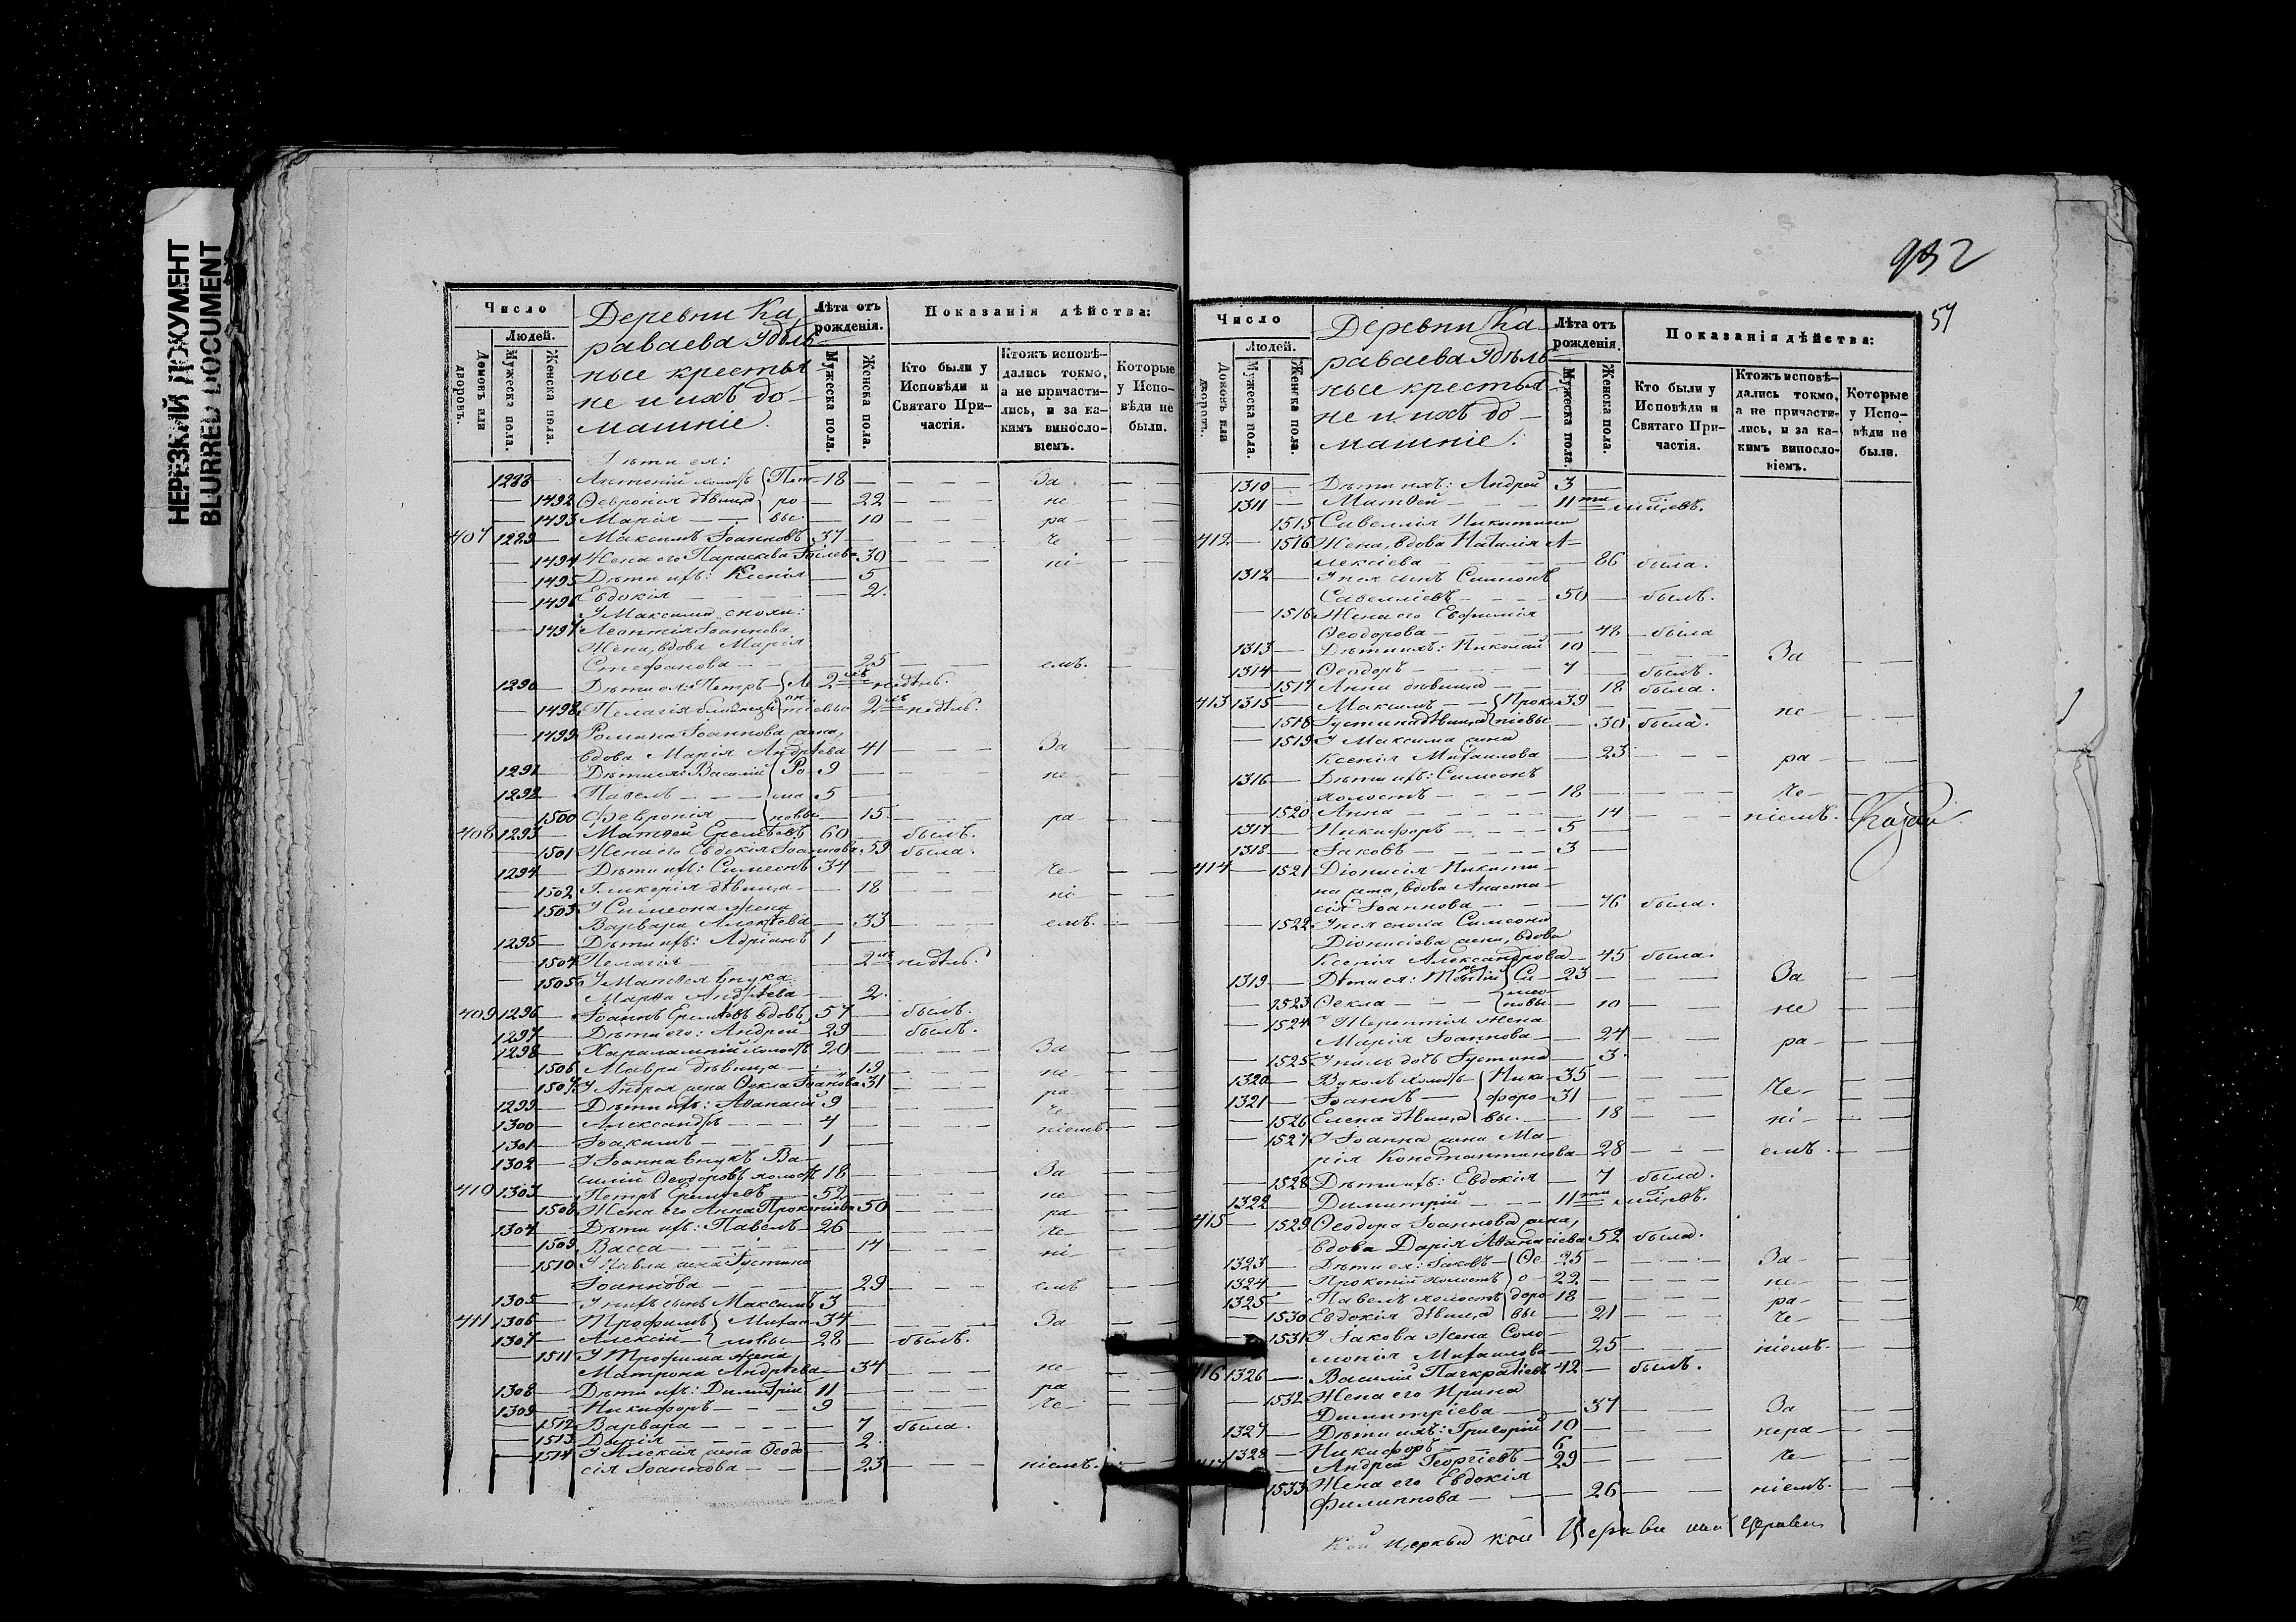 НЕРЕЗКИЙ ДОКУМЕНТ
BLURRED DOCUMENT
Число
Людей.
Домовъ или дворовъ.
Мужеска пола.
Женска пола.
Деревни Ка-
раваева Удѣль-
ные крестья
не и ихъ до-
машніе.
Лѣта отъ рожденія.
Мужеска пола.
Женска пола.
Показанія дѣйства:
Кто были у Исповѣди и Святаго При-частія.
Ктожъ исповѣ-дались токмо, а не причасти-лись, и за ка-кимъ винословіемъ.
Которые у Испо-вѣди не были.
Дѣти ея:
1288 — 18 — За
1492 Февронія дѣвица ро — 22 — не
1493 Марія — вы — 10 — ра
407 1289 Максимъ Іоанновъ 37 — че
1494 Жена его Параскева 30 — ні
1495 Дѣти ихъ: Ксенія — 5
1496 Евдокія — 2
У Максима снохи:
1497 Леонтія Іоаннова
Жена, вдова Марія
Стефанова — 25 — емъ.
1290 Дѣти ея: Петръ 2 недѣль.
1498 Пелагія 2 недѣль.
1499 Романа Іоаннова жена,
вдова Марія Андрѣева 41 — За
1291 Дѣти ея: Василій Ро 9 — не
1292 Павелъ — ма 5
1500 Февронія — новы 15 — ра
408 1293 Матѳей Еремѣевъ 60 — былъ.
1501 Жена его Евдокія Іоаннова 59 была.
1294 Дѣти ихъ: Симеонъ 34 — че
1502 Гликерія дѣвица — 18 — ні
1503 У Симеона жена
Варвара Алексѣева — 33 — емъ.
1295 Дѣти ихъ: Адріанъ 1
1504 Пелагія — 2 недѣль.
1505 У Матѳея внука
Марѳа Андрѣева — 2
409 1296 Іоаннъ Еремѣевъ вдовъ 57 — былъ.
1297 Дѣти его: Андрей 29 — былъ.
1298 Харалампій холостъ 20 — За
1506 Мавра дѣвица — 19 — не
1507 У Андрея жена Ѳекла Іоанова 31 — ра
1299 Дѣти ихъ: Аѳанасій 9 — че
1300 Александръ — 4 — ніемъ
1301 Іоакимъ — 1
1302 У Іоанна внукъ Ва-
силій Ѳеодоровъ холостъ 18 — За
410 1303 Петръ Еремѣевъ — 52 — не
1508 Жена его Анна Прокопіева 50 — ра
1304 Дѣти ихъ: Павелъ 26 — че
1509 Васса — 14 — ні
1510 У Павла жена Іустина
Іоаннова — 29 — емъ
1305 У нихъ сынъ Максимъ 3
411 1306 Трофимъ Михаи 34 — За
1307 Алексій ловы 28 — былъ.
1511 У Трофима жена
Матрона Андрѣева — 34 — не
1308 Дѣти ихъ: Димитрій 11 — ра
1309 Никифоръ — 9 — че
1512 Варвара — 7 была
1513 Дарія — 2
1514 У Алексія жена Ѳеодо-
сія Іоаннова — 23 — ніемъ.
932
57
Число
Людей.
Домовъ или дворовъ.
Мужеска пола.
Женска пола.
Деревни Ка-
раваева Удѣль-
ные крестья-
не и ихъ до-
машніе.
Лѣта отъ рожденія.
Мужеска пола.
Женска пола.
Показанія дѣйства:
Кто были у Исповѣди и Святаго При-частія.
Ктожъ исповѣ-дались токмо, а не причасти-лись, и за ка-кимъ винословіемъ.
Которые у Испо-вѣди не были.
1310 Дѣти ихъ: Андрей 3
1311 Матѳей — 11ти
1515 Савеллія Никитина
412 1516 Жена, вдова Наталія А-
лексіева — 86 была.
1312 У нея сынъ Симеонъ
Савелліевъ — 50 — былъ.
1516 Жена его Евфимія
Ѳеодорова — 48 — была
1313 Дѣти ихъ: Николай 10 — За
1314 Ѳеодоръ — 7 — былъ.
1517 Анна дѣвица — 18 была.
413 1315 Максимъ — Проко 39 — не
1518 Іустина дѣвица піевы — 30 была.
1519 У Максима жена
Ксенія Михаилова — 23 — ра
1316 Дѣти ихъ: Симеонъ
холостъ — 18 — че
1520 Анна — 14 — ніемъ.
1317 Никифоръ — 5
1318 Іаковъ — 3
414 1521 Діонисія Никити-
на жена, вдова Анаста-
сія Іоаннова — 76 была.
1522 У нея сноха Симеона
Діонисіева жена, вдова
Ксенія Александрова 45 была.
1319 Дѣти ея: Си 23 — За
1523 Ѳекла — новы — 10 — не
1524 У Терентія жена
Марія Іоаннова — 24 — ра
1525 У нихъ дочь Іустина — 3
1320 Вуколъ холостъ Ники 35 — че
1321 Іоаннъ — форо 31
1526 Елена дѣвица вы. — 18 — ні
1527 У Іоанна жена Ма-
рія Константинова — 28 — емъ.
1528 Дѣти ихъ: Евдокія — 7 была.
1322 Димитрій — 11ти
415 1529 Ѳеодора Іоаннова жена,
вдова Дарія Аѳанасіева 52 была.
1323 Дѣти ея: Іаковъ Ѳе 25 — За
1324 Прокопій холостъ о 22 — не
1325 Павелъ холостъ доро 18 — ра
1530 Евдокія дѣвица вы — 21 — че
1531 У Іакова жена Соло-
монія Михаилова — 25 — ніемъ.
416 1326 Василій Панкратіевъ 42 — былъ.
1532 Жена его Ирина
Димитріева — 37 — За
1327 Дѣти ихъ: Григорій 10 — нера
1328 Никифоръ — 6
Андрей Георгіевъ 29 — че
1533 Жена его Евдокія
Филиппова — 26 — ніемъ.
Церкви